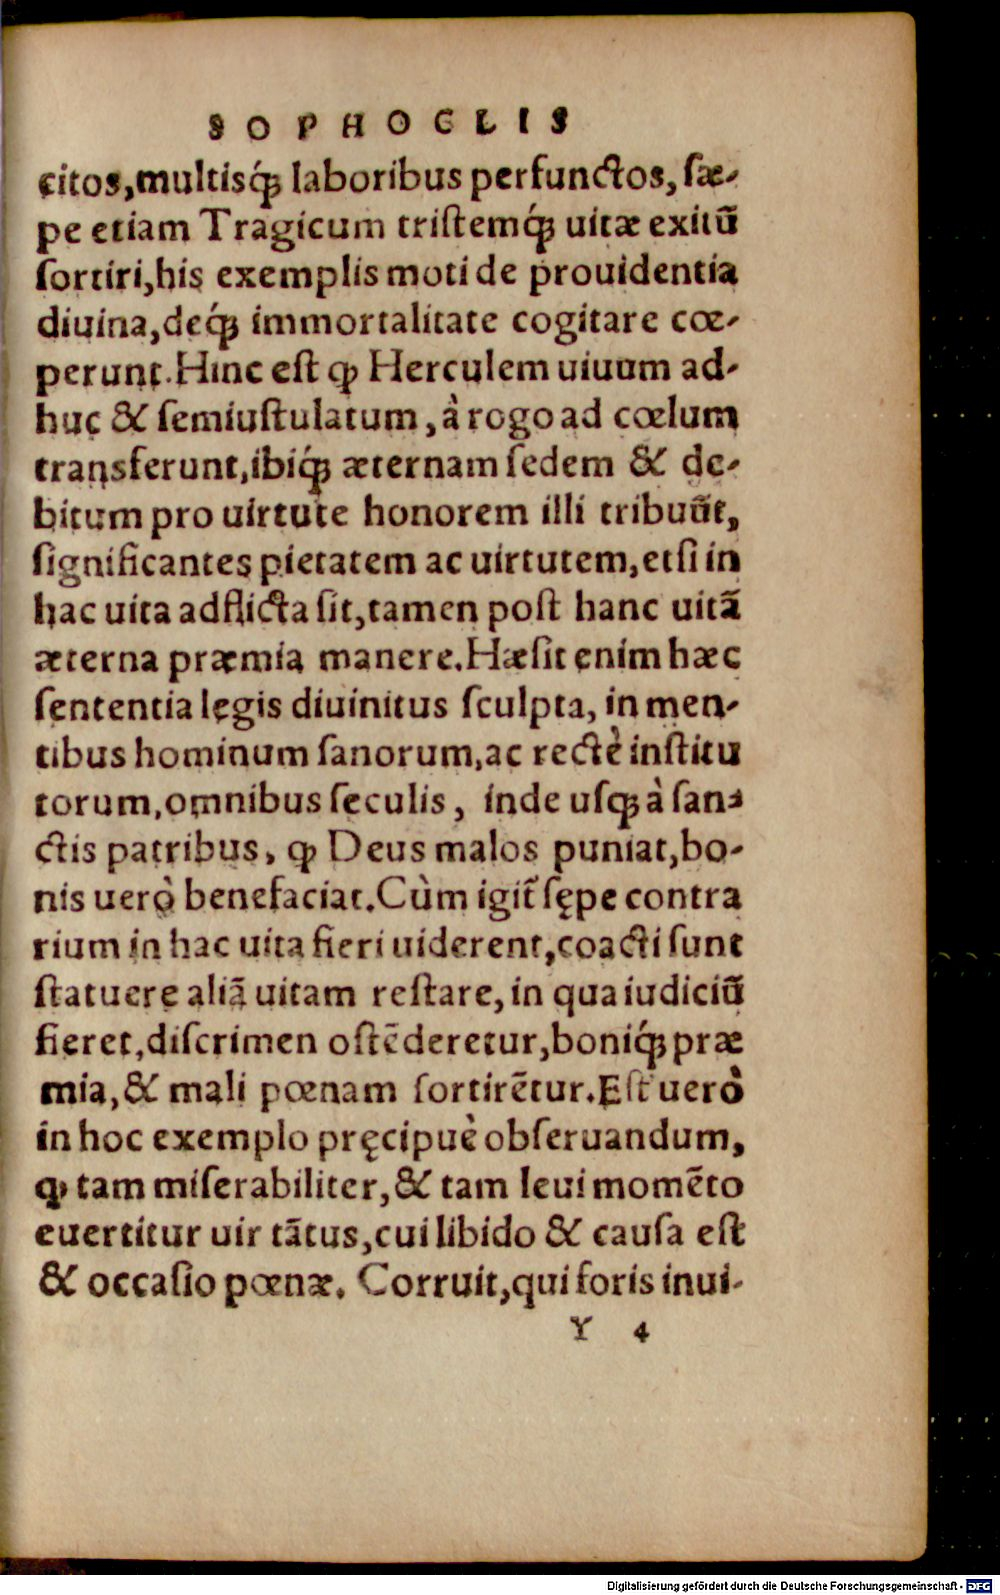 SOPHOCLIS
citos,multisq́ꝫ laboribus perfunctos, ſæ-
pe etiam Tragicum triſtemq́ꝫ uitæ exitũ
ſortiri,his exemplis moti de prouidentia
diuina,deq́ꝫ immortalitate cogitare cœ-
perunt.Hinc eſt ꝙ Herculem uiuum ad-
huc & ſemiuſtulatum, à rogo ad cœlum
transferunt,ibiq́ꝫ æternam ſedem & de-
bitum pro uirtute honorem illi tribuũt,
significantes pietatem ac uirtutem,etſi in
hac uita adflicta ſit,tamen poſt hanc uitã
æterna præmia manere.Hæſit enim hæc
ſententia legis diuinitus ſculpta, in men-
tibus hominum ſanorum,ac rectè inſtitu
torum,omnibus ſeculis, inde uſqꝫ à ſan-
ctis patribus, ꝙ Deus malos puniat,bo-
nis uerò benefaciat.Cùm igit̃ ſępe contra
rium in hac uita fieri uiderent,coacti ſunt
ſtatuere aliã uitam reſtare, in qua iudiciũ
fieret,diſcrimen oſtẽderetur,boniq́ꝫ præ
mia,& mali pœnam ſortirẽtur.Eſt uerò
in hoc exemplo pręcipuè obſeruandum,
ꝙ tam miſerabiliter,& tam leui momẽto
euertitur uir tãtus,cui libido & cauſa eſt
& occaſio pœnæ. Corruit,qui foris inui-
Y 4
Digitalisierung gefördert durch die Deutsche Forschungsgemeinschaft - DFG